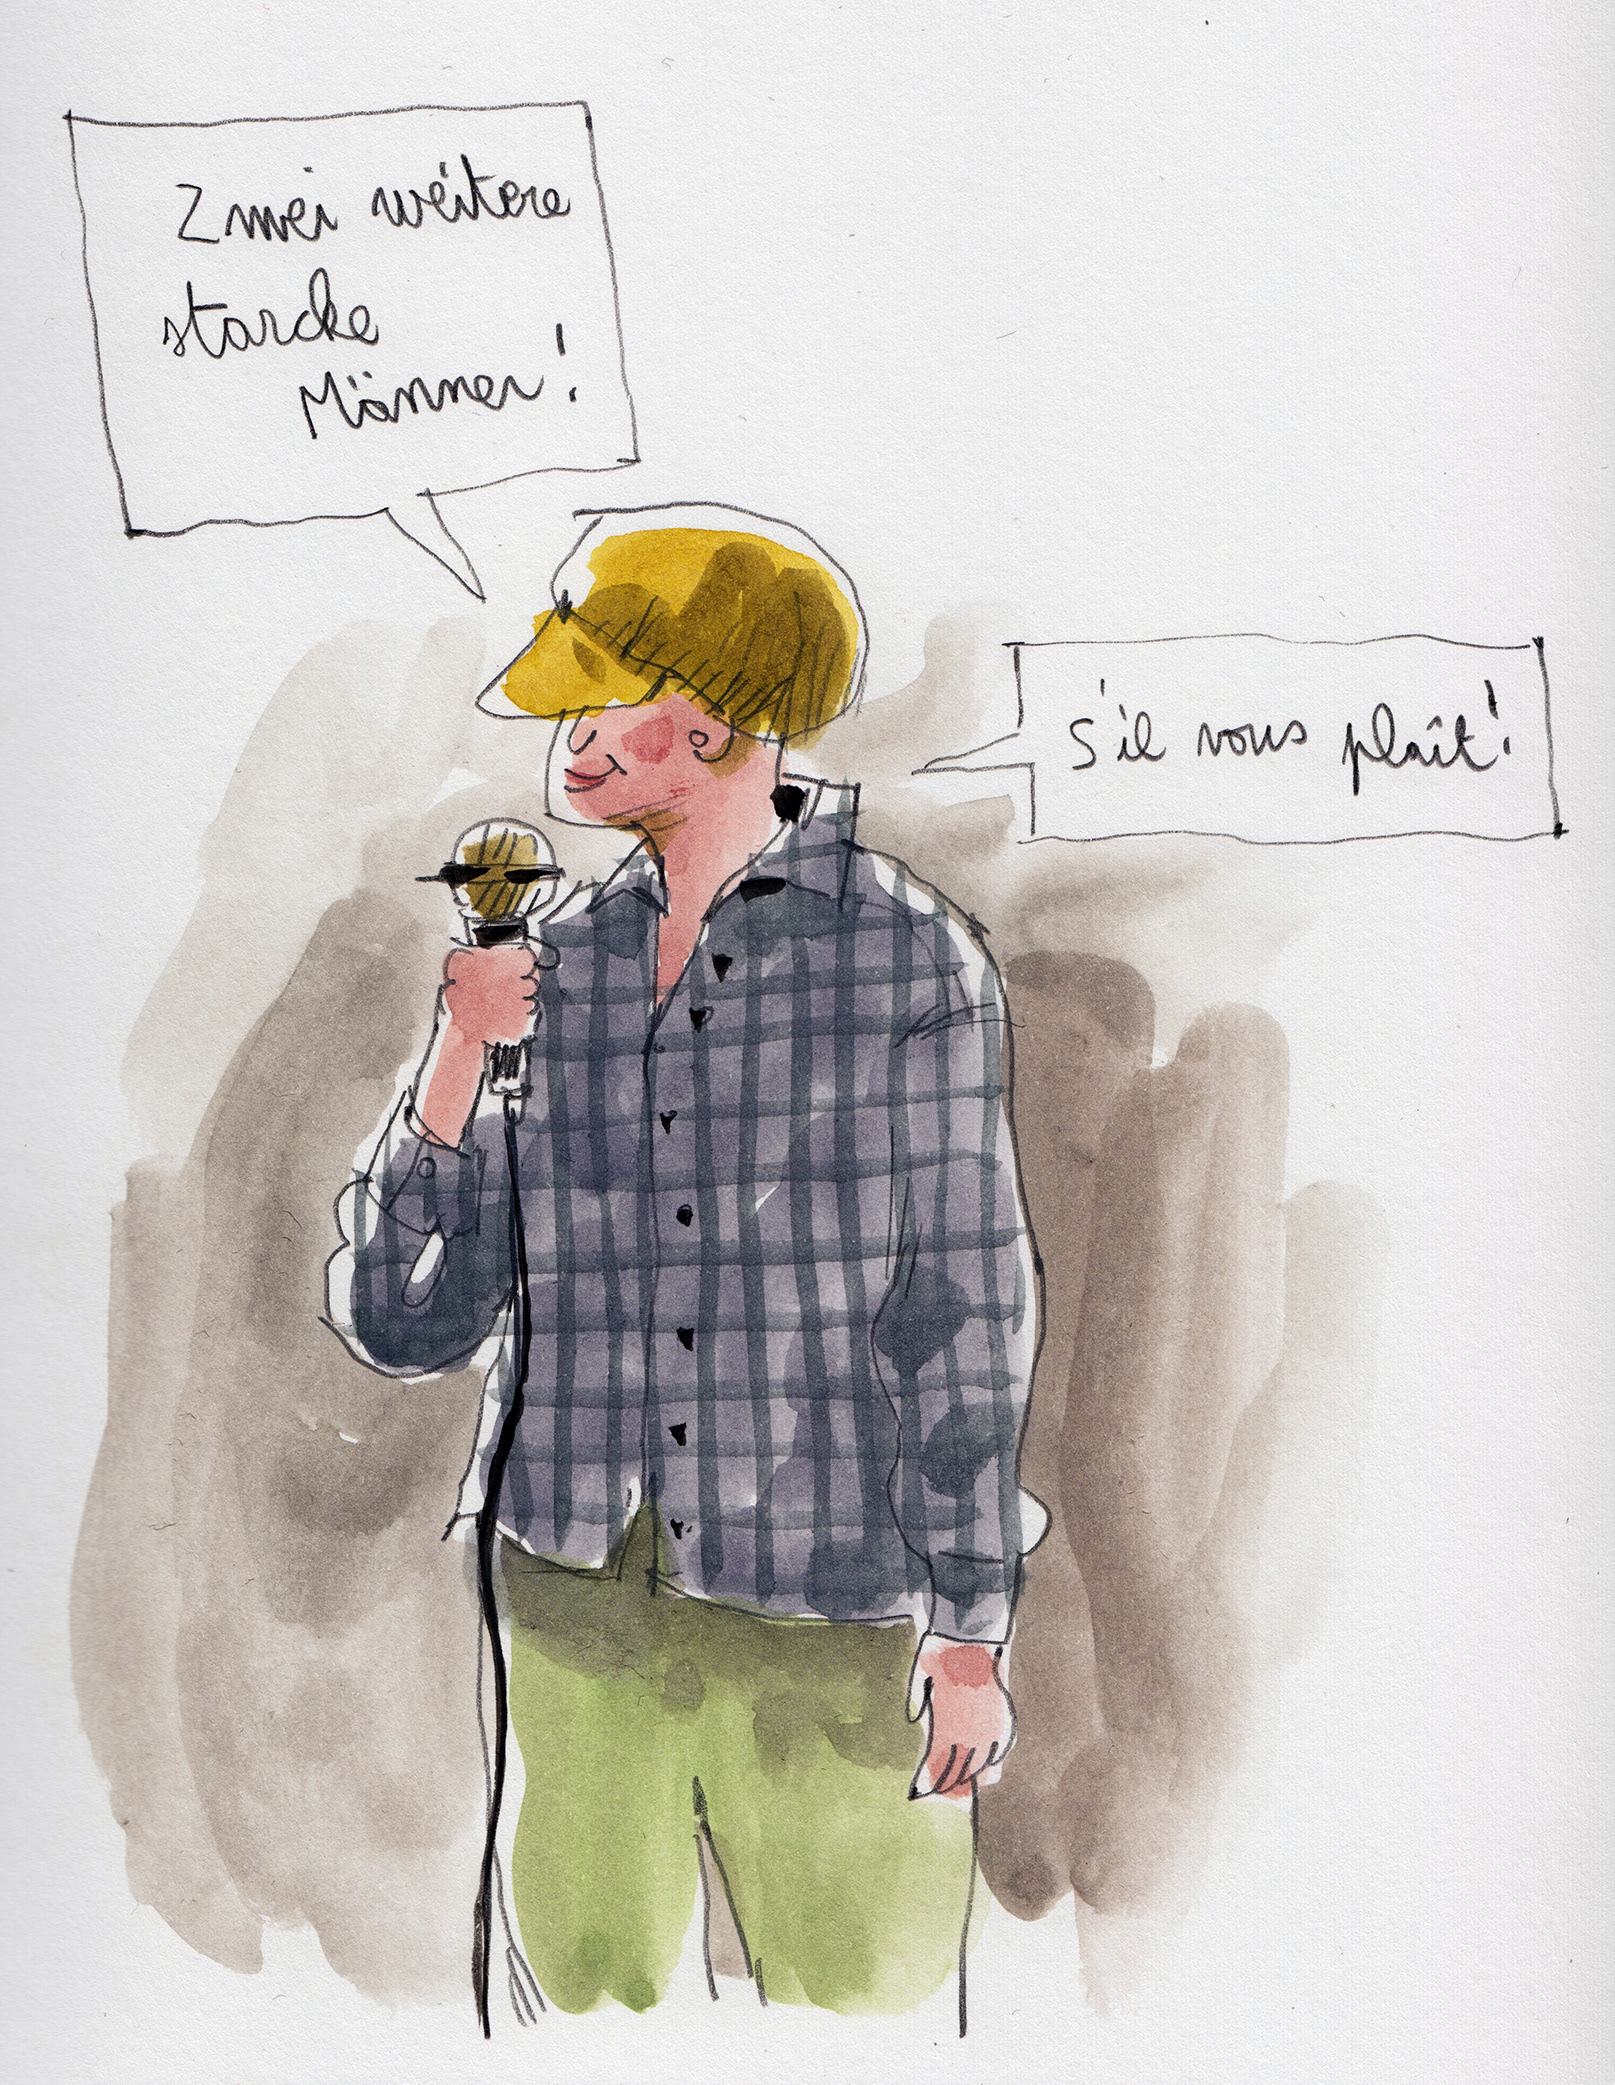 Zwei weitere
starcke
Männer!
S'il vous plaît!